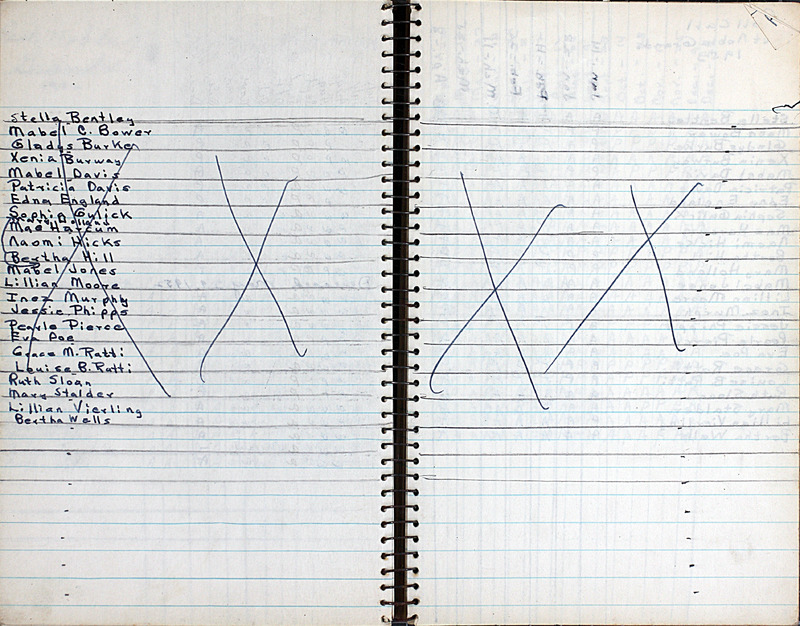 Stella Bentley
Mabel C. Bower
Gladys Burker
Xenia Burway
Mabel Davis
Patricia Davis
Edna England
Sophia Gulick
Holland
Mae Harcum
Naomi Hicks
Bertha Hill
Mabel Jones
Lillian Moore
Inez Murphy
Jessie Phipps
Pearle Pierce
Eva Poe
Grace M. Ratti
Louise B. Ratti
Ruth Sloan
Mary Stalder
Lillian Vierling
Bertha Wells